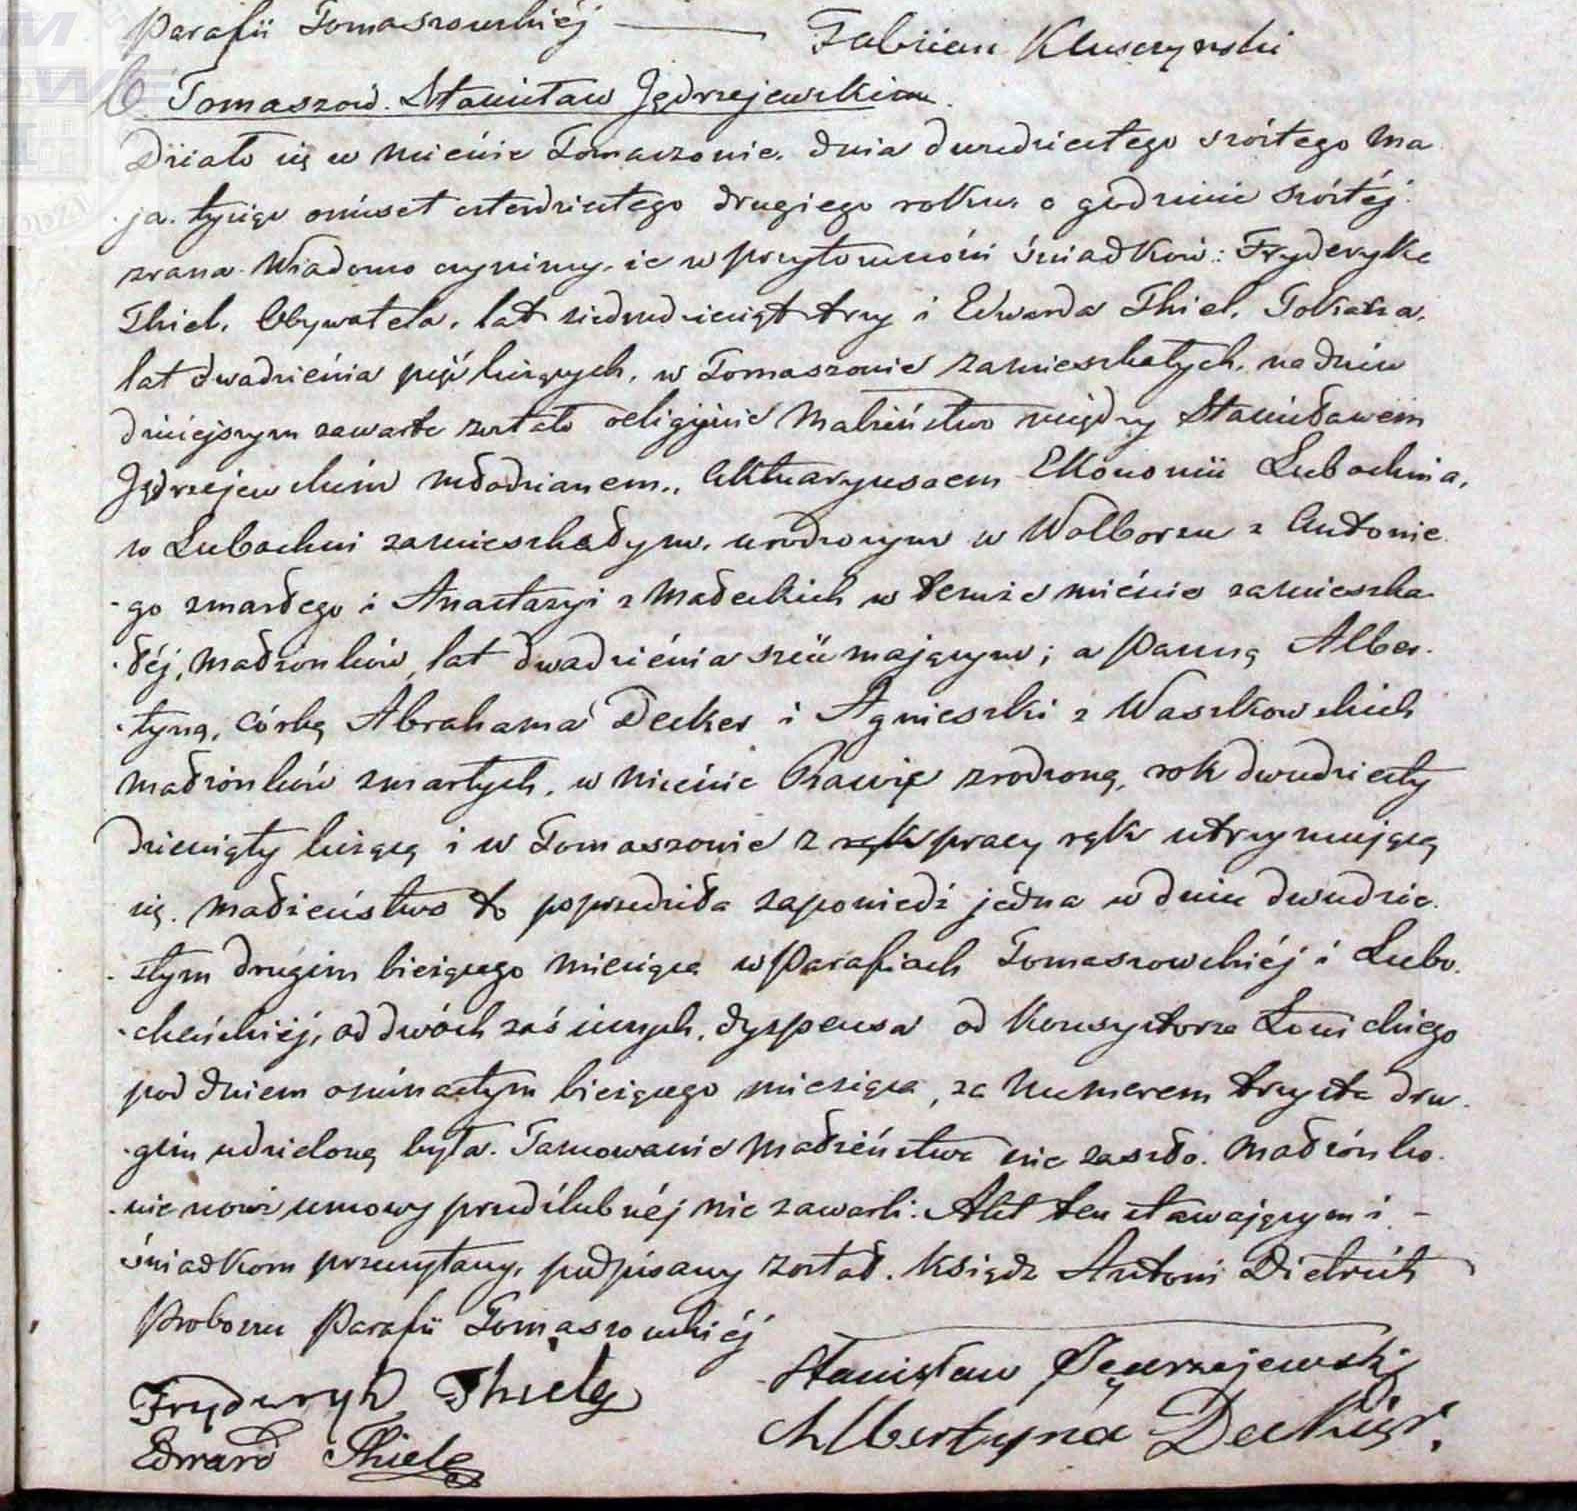 Parafii Tomaszowskiéj — Fabian Kluczynski
6. Tomaszów. Stanisław Jędrzejewskiem.
Działo się w mieście Tomaszowie. dnia dwudziestego szóstego Ma
ja. tysiąc ośmset czterdziestego drugiego roku. o godzinie szóstéj.
zrana. Wiadomo czynimy. że w przytomności świadków: Fryderyka
Thiel. Obywatela. lat siedmdziesiąt trzy i Edwarda Thiel. Tokarza.
lat dwadzieścia pięć liczących. w Tomaszowie zamieszkałych. na dniu
dzisiejszym zawarte zostało religijnie Małżeństwo między Stanisławem
Jędrzejewskim młodzianem., Aktuaryuszem Ekonomii Lubochnia.
w Lubochni zamieszkałym. urodzonym w Wolborzu z Antonie
-go zmarłego i Anastazyi z Małeckich w temże mieście zamieszka
-łéj, Małżonków, lat dwadzieścia sześć mającym; a Panną Alber-
-tyną, córką Abrahama Decker i Agnieszki z Waszkowskich
małżonków zmarłych. w Mieście Rawie zrodzoną, rok dwudziesty
dziewiąty liczącą i w Tomaszowie z ręk pracy rąk utrzymującą
się. Małżeństwo to poprzedziła zapowiedź jedna w dniu dwudzie-
-stym drugim bieżącego miesiąca w Parafiach Tomaszowskiéj i Lubo-
-cheńskiéj, od dwóch zaś innych. dyspensa od Konsystorza Łowickiego
pod dniem ośmnastym bieżącego miesiąca, za Numerem trzysta dru-
-gim udzieloną była. Tamowanie Małżeństwa nie zaszło. Małżonko-
-wie nowi umowy przedślubnéj nie zawarli. Akt ten stawającym i -
świadkom przeczytany, podpisany został. Ksiądz Antoni Dietrich
Proboszcz Parafii Tomaszowskiéj
Fryderyk Thiele Stanisław Jędrzejewski
Edward Thiele Albertyna Decker.